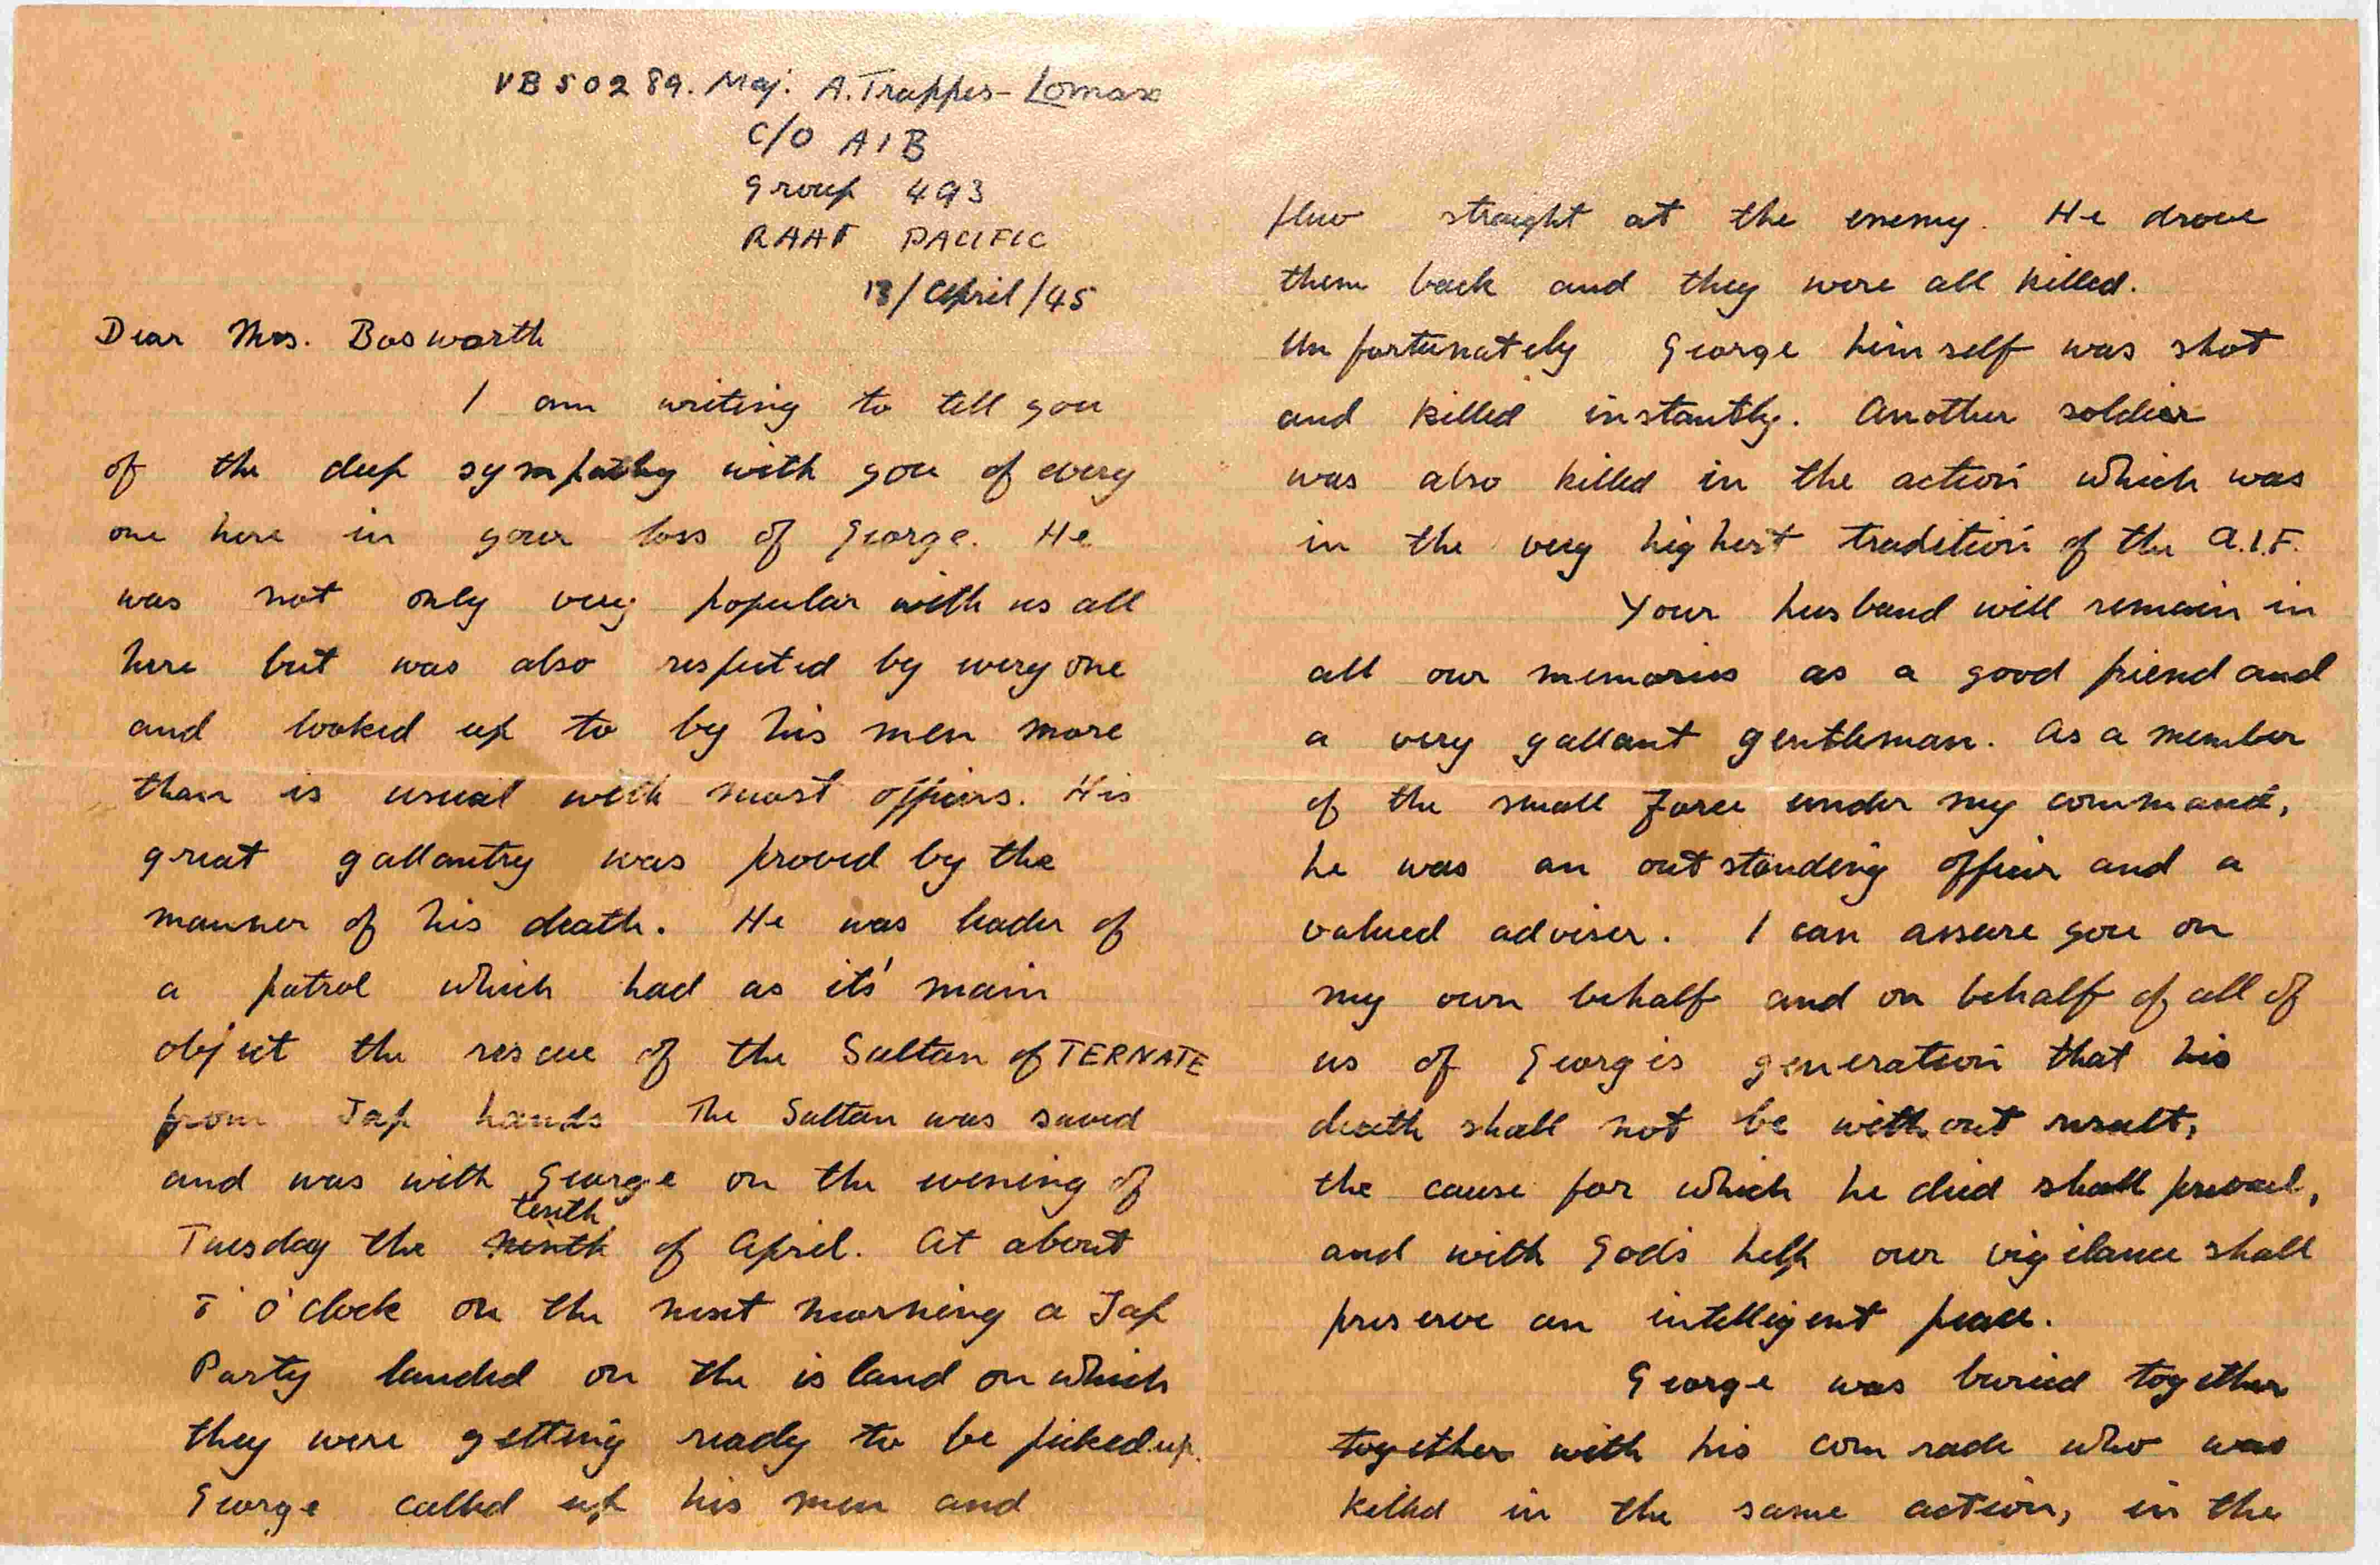 VB50289. Maj. A. Trappes-Lomax
C/O AIB
Group 493
RAAF PACIFIC
13/April/45
Dear Mrs. Bosworth
I am writing to tell you
of the deep sympathy with you of every
one here in your loss of George. He
was not only very popular with us all
here but was also respected by every one
and looked up to by his men more
than is usual with most officers. His
great gallantry was proved by the
manner of his death. He was leader of
a patrol which had as its' main
object the rescue of the Sultan of TERNATE
from Jap hands The Sultan was saved
and was with George on the evening of
tenth
Tuesday the ninth of April. At about
o'clock on the next morning a Jap
Party landed on the island on which
they were getting ready to be picked up.
George called up his men and
flew straight at the enemy. He drove
them back and they were all killed.
Unfortunately George himself was shot
and killed instantly. Another soldier
was also killed in the action which was
in the very highest tradition of the A.I.F.
Your husband will remain in
all our memories as a good friend and
a very gallant gentleman. As a member
of the small force under my command,
he was an outstanding officer and a
valued adviser. I can assure you on
my own behalf and on behalf of all of
us of Georges generation that his
death shall not be without result,
the cause for which he died shall prevail,
and with God's help our vigilance shall
preserve an intelligent peace.
George was buried together
together with his comrade who was
killed in the same action, in the